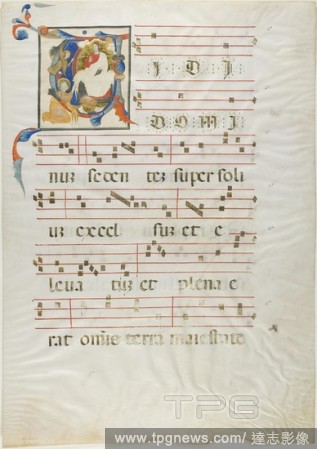 IDI
DOMI
nuz seden tez super soli
uz excel suz et e
leva tuz et plena e
rat omis terra maiestate
TPG
www.tpgnews.com/ 達志影像